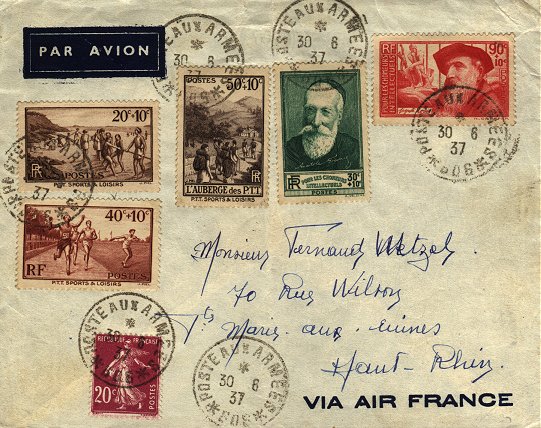 PAR AVION
POSTE AUX ARMEES
30 6
37
*509*
POSTE AUX ARMEES
30 6
37
20c+10c
RF
P.T.T. SPORTS & LOISIRS
POSTES
50c+10c
RF
L'AUBERGE des P.T.T
P.T.T. SPORTS & LOISIRS
POUR LES CHOMEURS
INTELLECTUELS
RF
30c
+10c
POSTES
RF
90c
+10c
POUR LES CHOMEURS
INTELLECTUELS
POSTE AUX ARMEES
30 6
37
*509*
POSTE AUX ARMEES
37
40c+10c
RF
POSTES
P.T.T. SPORTS & LOISIRS
Monsieur Fernand Wetzel
70 Rue Wilson
Ste Marie-aux-Mines
Haut-Rhin
POSTE AUX ARMEES
30
REPUBLIQUE FRANCAISE
20c
POSTES
POSTE AUX ARMEES
30 6
37
*509*
VIA AIR FRANCE